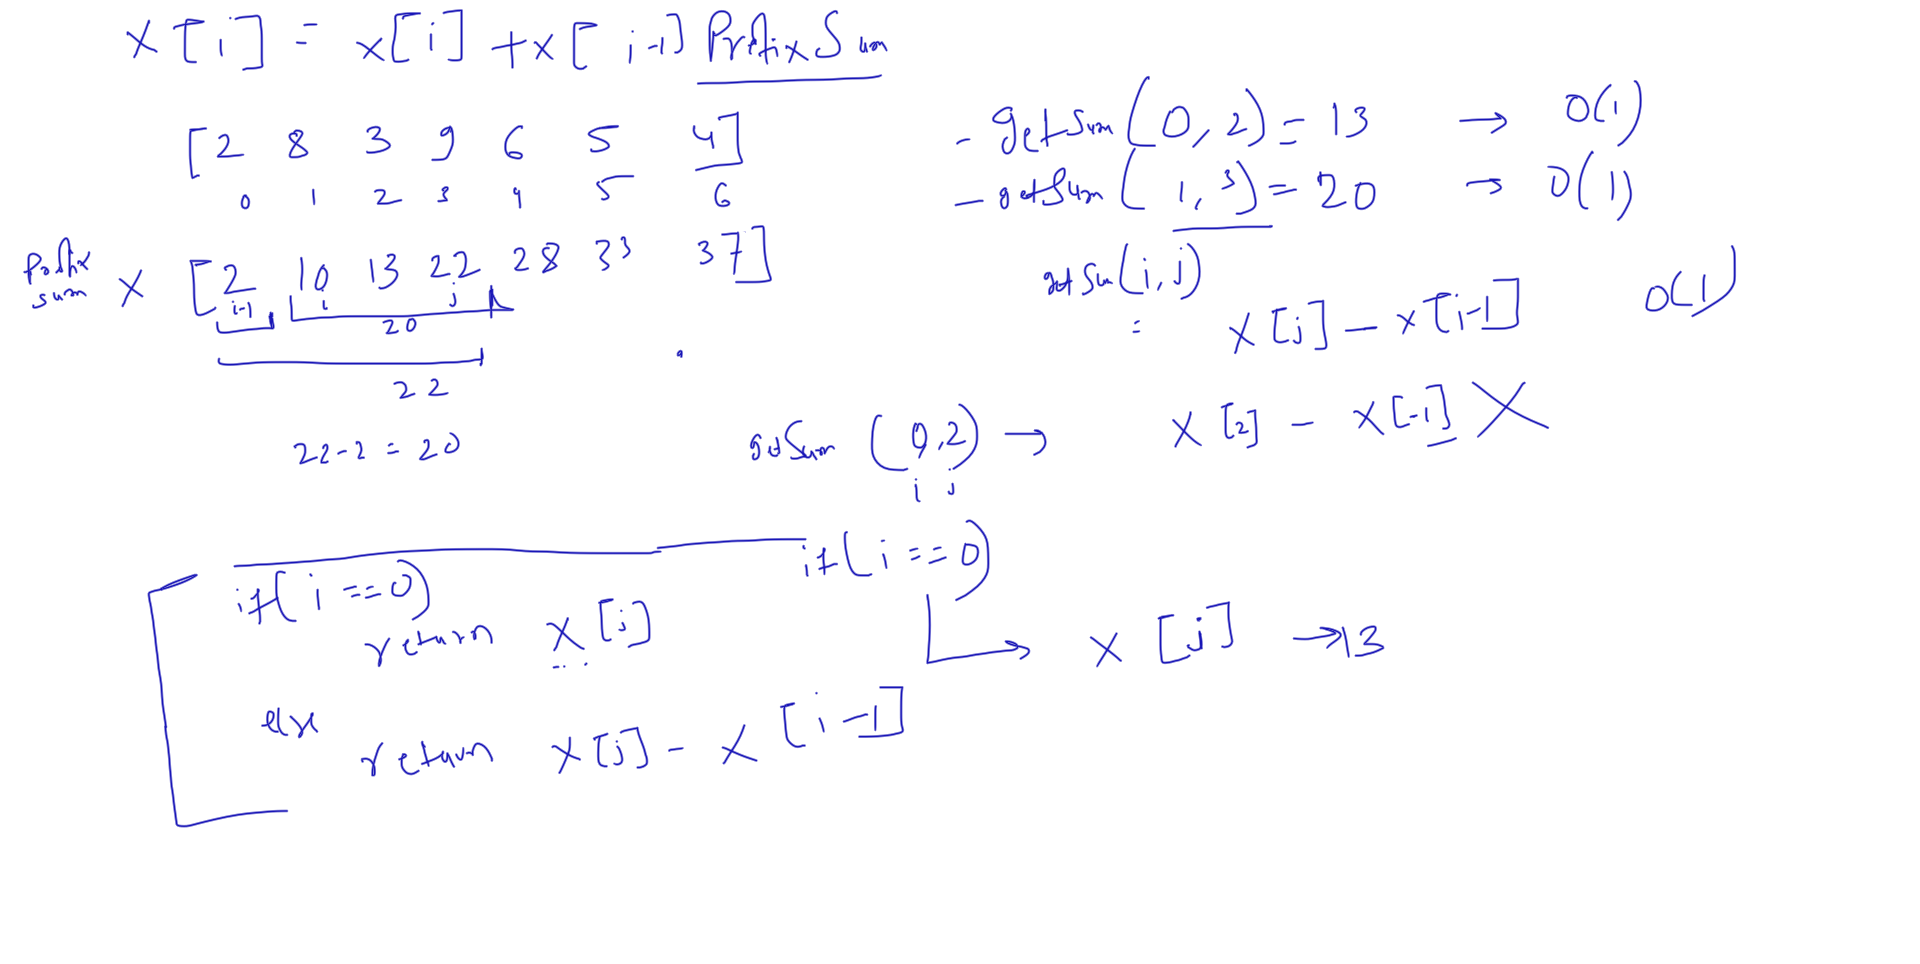 x[i] = x[i] + x[i-1] Prefix Sum
[2 8 3 9 6 5 4]
0 1 2 3 4 5 6
Prefix sum x [2 10 13 22 28 33 37]
i-1 i j
20
22
22-2 = 20
- getSum(0, 2) = 13 → O(1)
- getSum(1, 3) = 20 → O(1)
getSum(i, j)
= x[j] - x[i-1] O(1)
getSum(0,2) → x[2] - x[-1] X
i j
if(i==0)
x[j] → 13
if(i==0)
return x[j]
else
return x[j] - x[i-1]